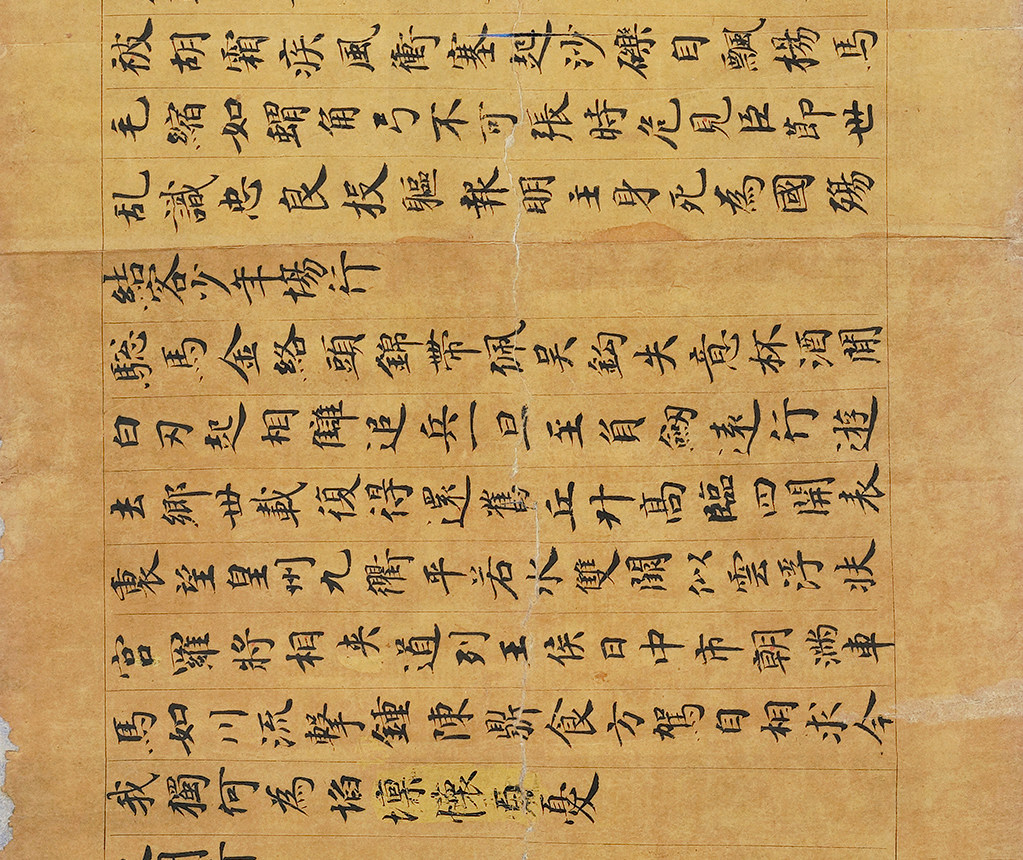 被胡霜疾風衝塞起沙礫自飄揚馬
毛縮如蝟角弓不可張時危見臣節世
乱識忠良投軀報明主身死為國殤
結客少年場行
驄馬金絡頭錦帶佩吳鈎失意杯酒間
白刃起相讎追兵一旦至負劒遠行遊
去鄉卅載復得還舊丘升高臨四開表
裏望皇州九衢平若水雙闕似雲浮扶
宮羅將相夾道列王侯日中市朝滿車
馬如川流擊鍾陳鼎食方駕自相求今
我獨何為埳壈懷百憂